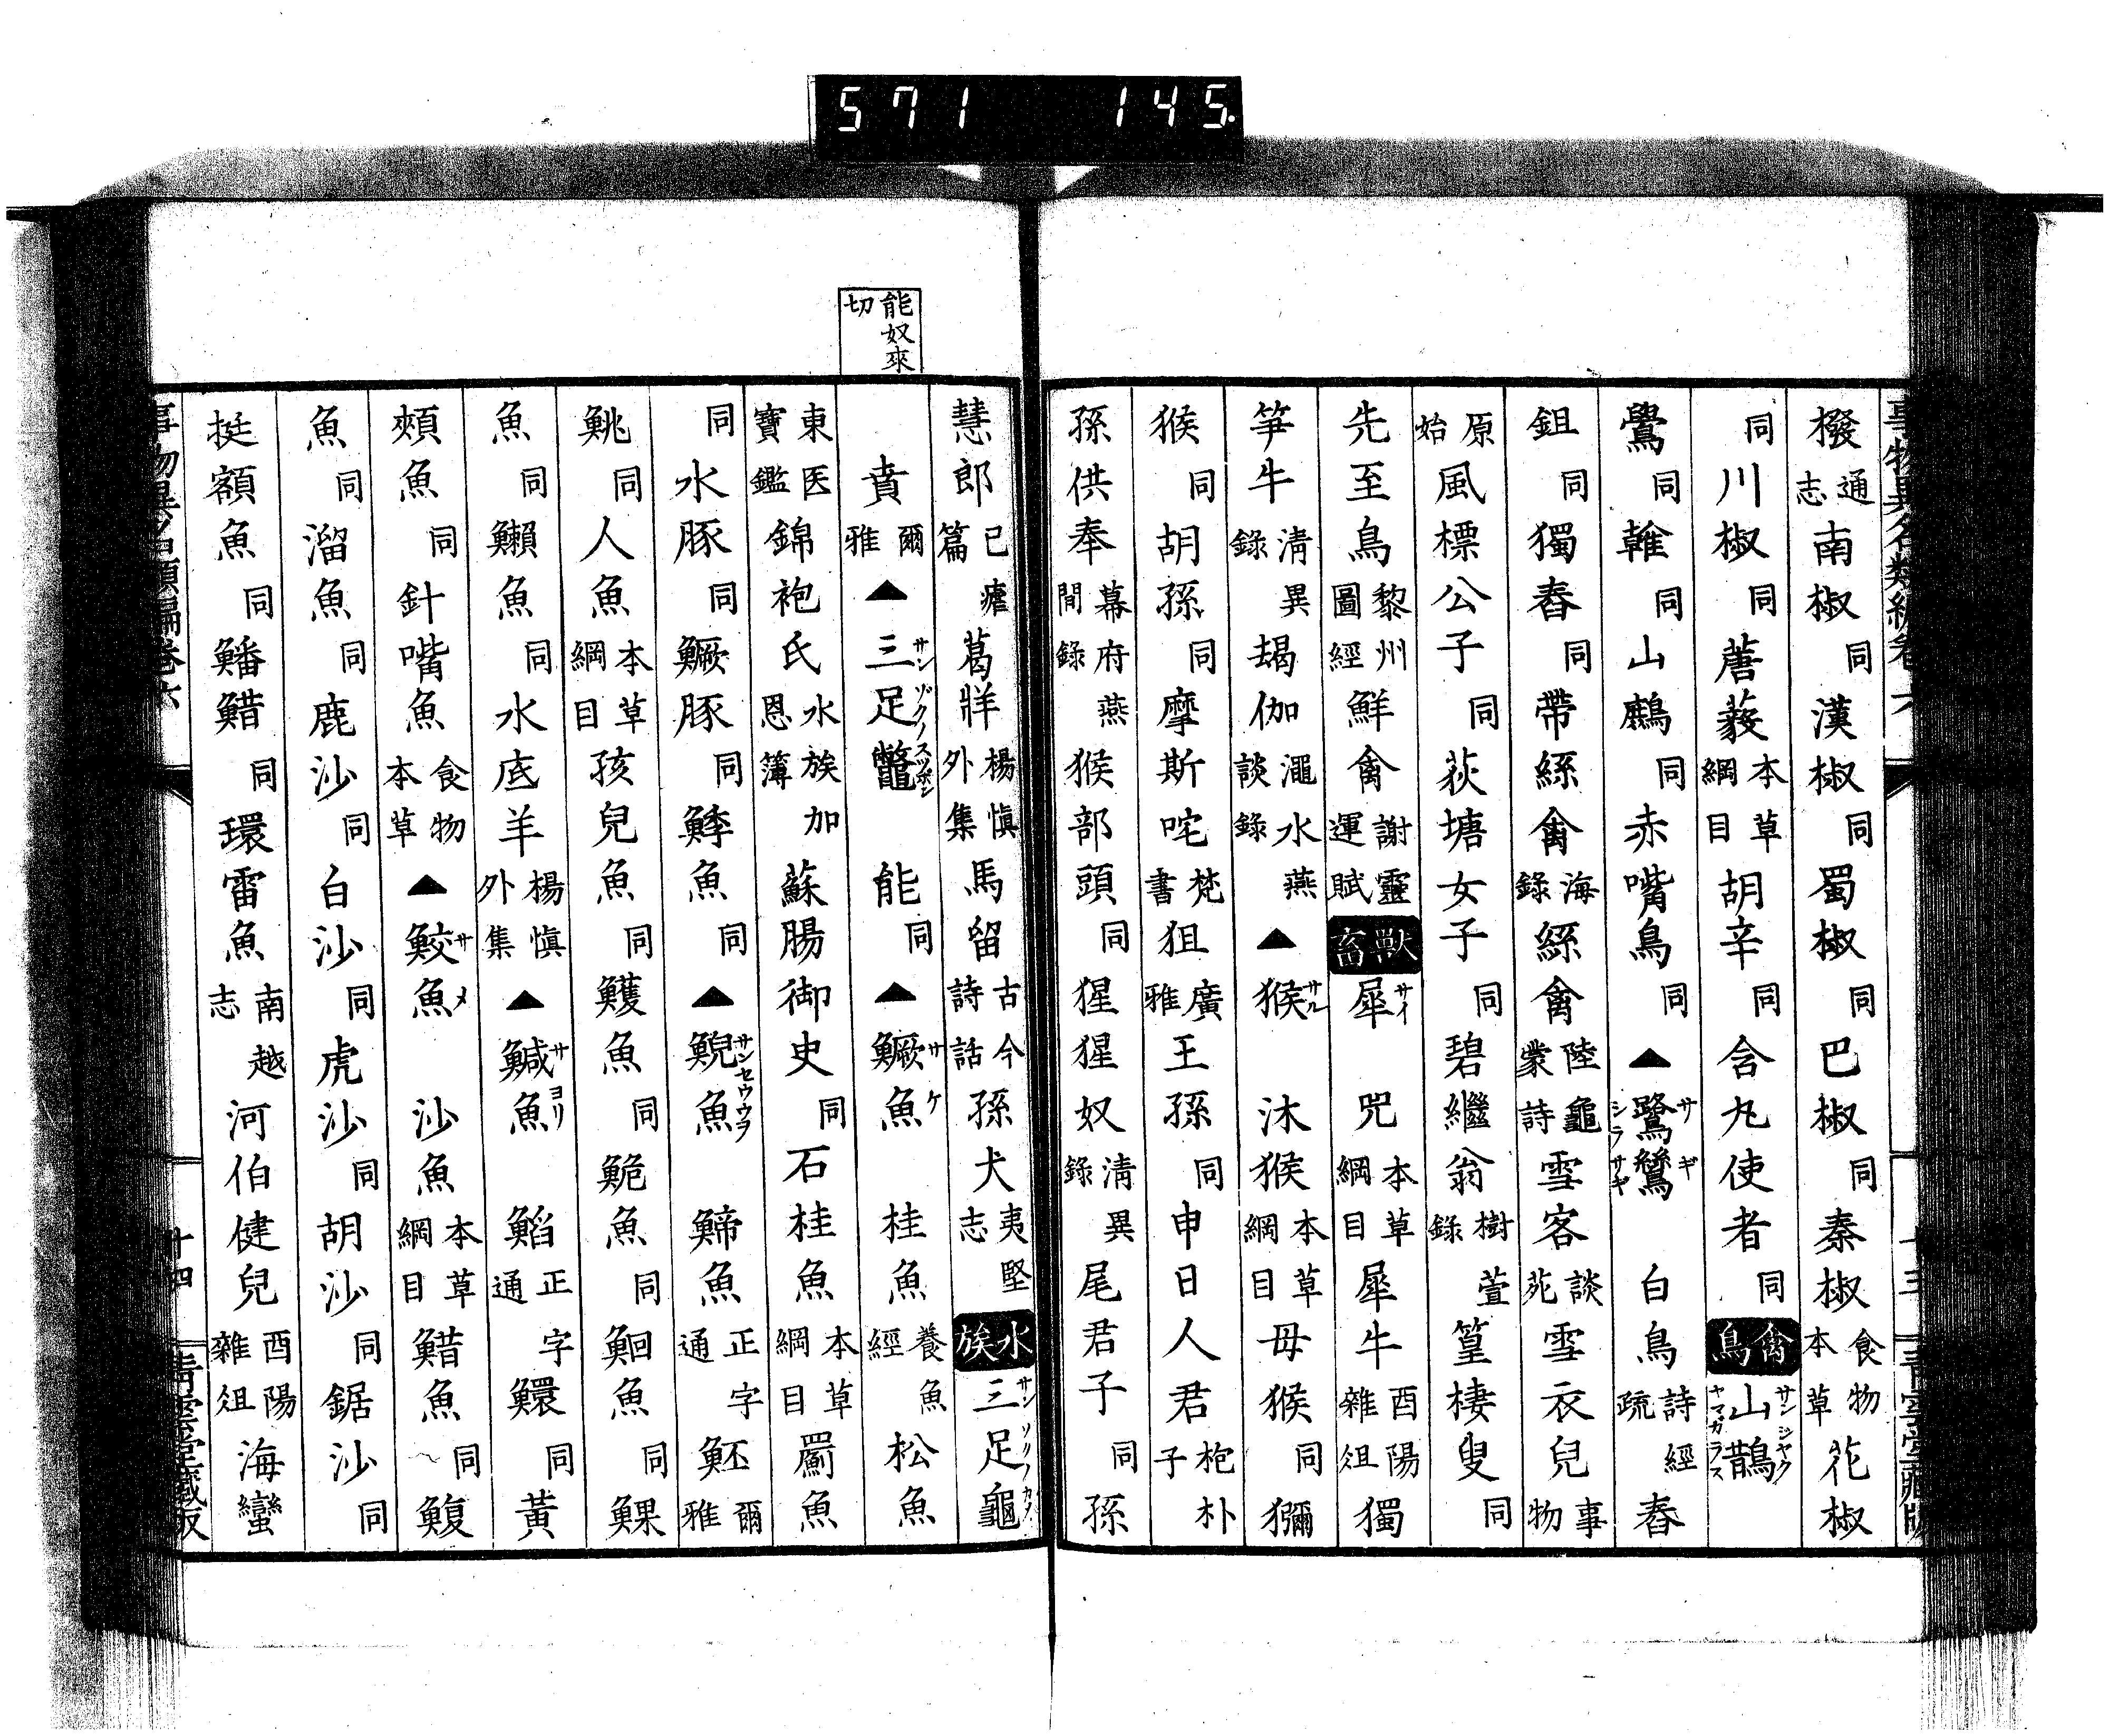 571 145.
事物異名類編卷六 十三 青雲堂藏版
橃 通志 南椒 同 漢椒 同 蜀椒 同 巴椒 同 秦椒 食物本草 花椒
同 川椒 同 蓎藙 本草綱目 胡辛 同 含丸使者 同 禽鳥 山鵲 サンジヤク ヤマガラス
鸒 同 雗 同 山鷓 同 赤嘴鳥 同 ▲ 鷺鷥 サギ シラサギ 白鳥 詩經疏 舂
鉏 同 獨舂 同 帶絲禽 海錄 絲禽 陸龜蒙詩 雪客 談苑 雪衣兒 事物
原始 風標公子 同 荻塘女子 同 碧繼翁 樹萱錄 篁棲叟 同
先至鳥 黎州圖經 鮮禽 謝靈運賦 獸畜 犀 サイ 兕 本草綱目 犀牛 酉陽雜俎 獨
笋牛 清異錄 朅伽 澠水燕談錄 ▲ 猴 サル 沐猴 本草綱目 母猴 同 獼
猴 同 胡孫 同 摩斯咤 梵書 狙 廣雅 王孫 同 申日人君 枹朴子
孫供奉 幕府燕閒錄 猴部頭 同 猩猩奴 清異錄 尾君子 同 孫
能奴來切
慧郎 已瘧篇 葛牂 楊慎外集 馬留 古今詩話 孫犬 夷堅志 水族 三足龜 サンソクノカメ
賁 爾雅 ▲ 三足鼈 サンゾクノスツポン 能 同 ▲ 鱖魚 サケ 桂魚 養魚經 松魚
東医寶鑑 錦袍氏 水族加恩簿 蘇腸御史 同 石桂魚 本草綱目 罽魚
同 水豚 同 鱖豚 同 鯚魚 同 ▲ 鯢魚 サンセウウヲ 鯑魚 正字通 魾 爾雅
鮡 同 人魚 本草綱目 孩兒魚 同 鱯魚 同 鮠魚 同 鮰魚 同 鰥
魚 同 鱜魚 同 水底羊 楊慎外集 ▲ 鰔魚 サヨリ 鮨 正字通 鱞 同 黃
頰魚 同 針嘴魚 食物本草 ▲ 鮫魚 サメ 沙魚 本草綱目 䱜魚 同 鰒
魚 同 溜魚 同 鹿沙 同 白沙 同 虎沙 同 胡沙 同 鋸沙 同
挺額魚 同 鱕䱜 同 環雷魚 南越志 河伯健兒 酉陽雜俎 海蠻
事物異名類編卷六 十四 青雲堂藏版